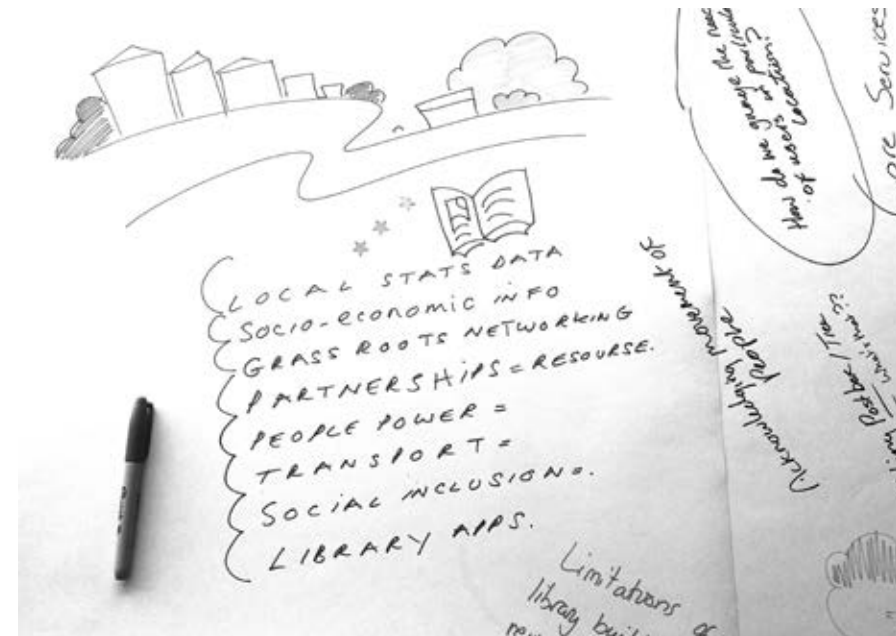 LOCAL STATS DATA
Socio-economic INFO
GRASS ROOTS NETWORKING
PARTNERSHIPS = RESOURSE.
PEOPLE POWER =
TRANSPORT =
SOCIAL INCLUSION =.
LIBRARY APPS.
Limitations of
library
Acknowledging movement of
People
How do we guage the
of users in
location?
Post box / Tree
what's that ??
Services